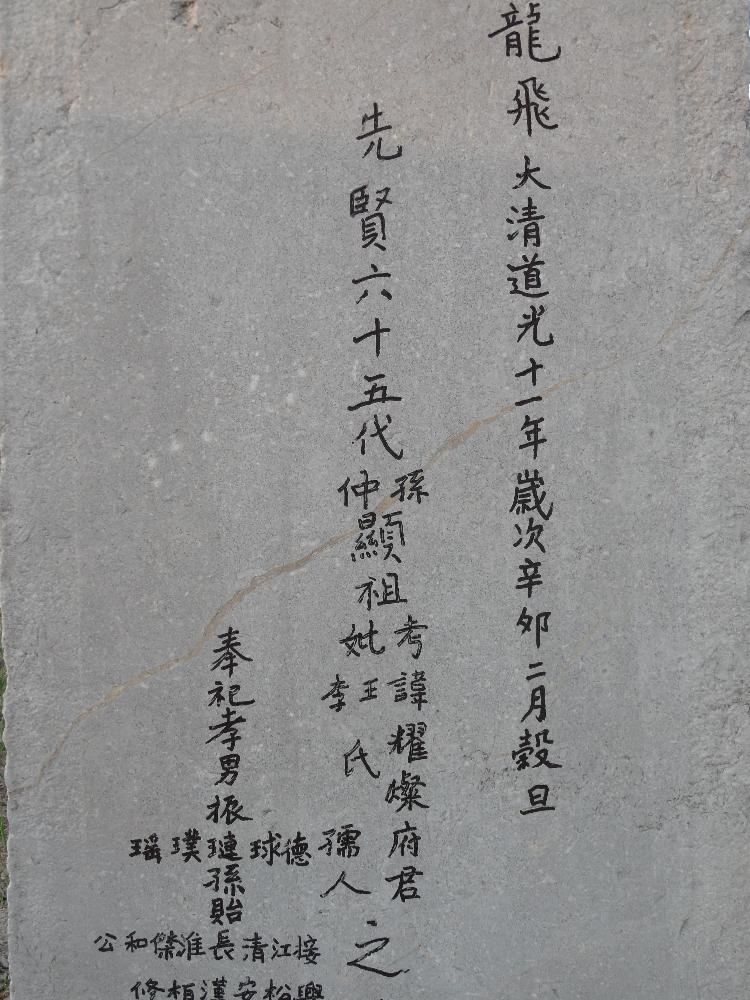 龍飛大清道光十一年歲次辛卯二月穀旦
先賢六十五代
孫
仲
顯祖
考諱耀燦府君
妣李王氏孺人
之
奉祀孝男振
德球璉璞瑶
孫貽
接江清長淮傑和公
興松安漢栢修